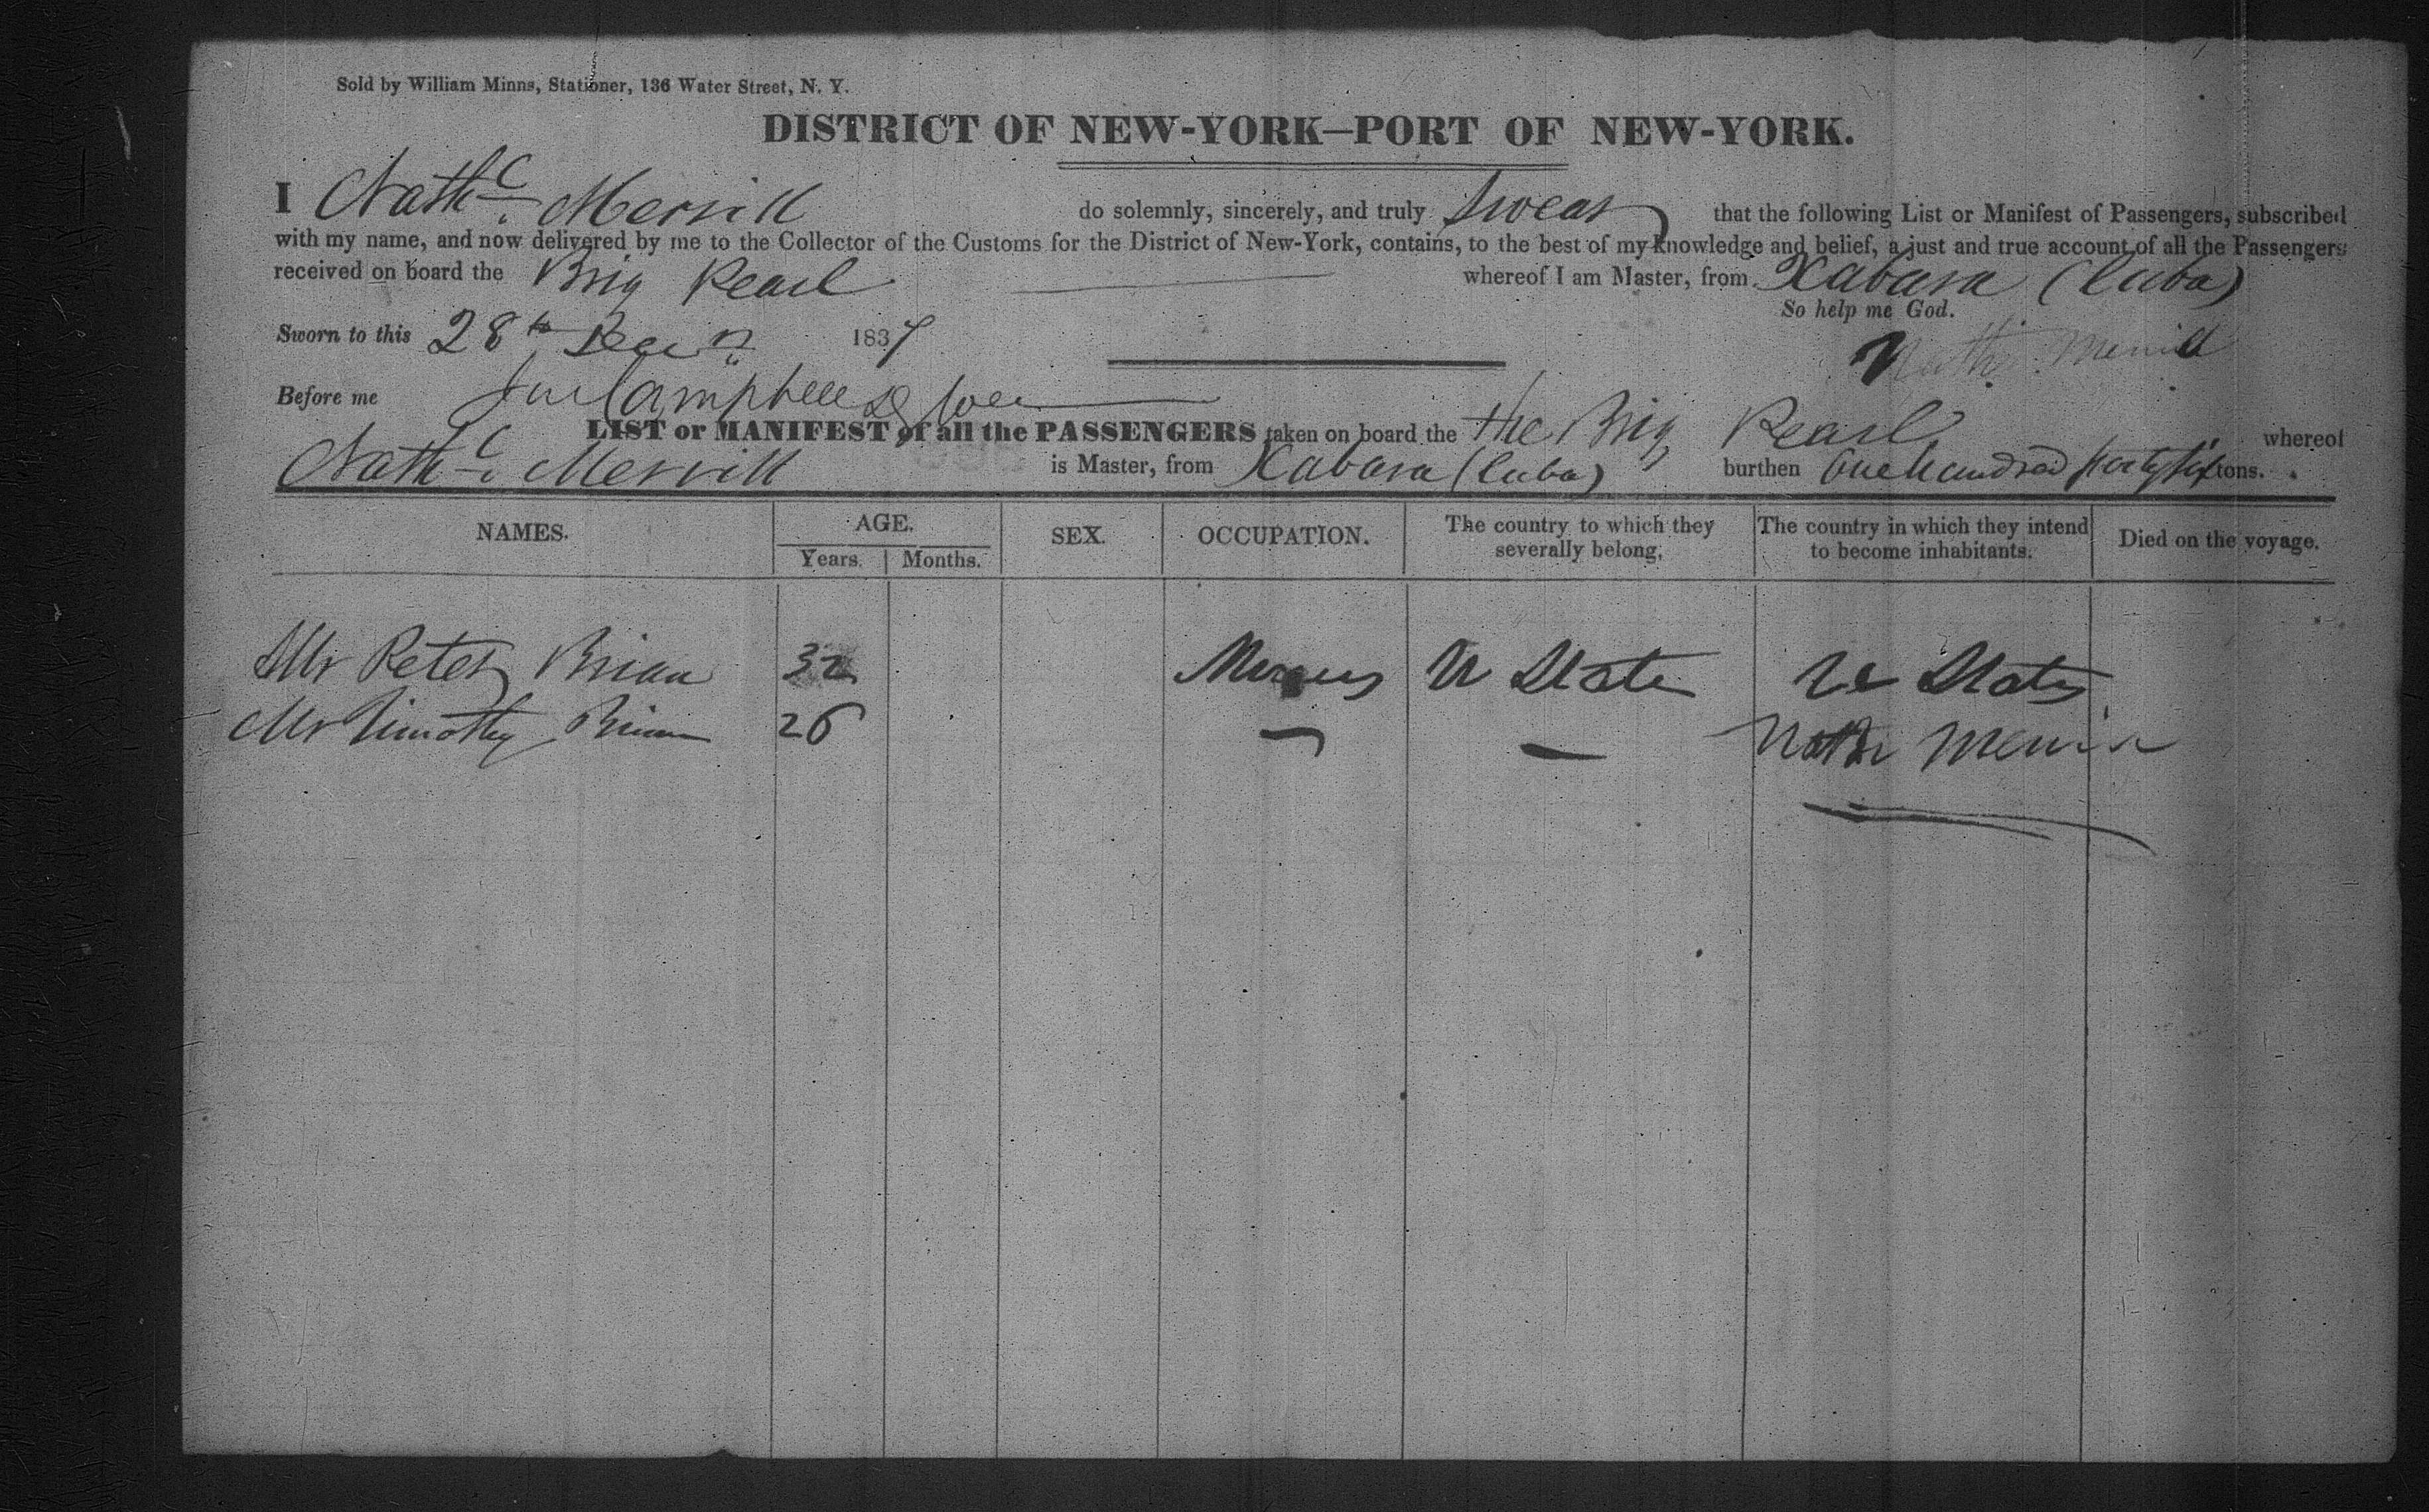 Sold by William Minns, Stationer, 136 Water Street, N. Y.
DISTRICT OF NEW-YORK—PORT OF NEW-YORK.
I Nathl. Merrill do solemnly, sincerely, and truly swear that the following List or Manifest of Passengers, subscribed
with my name, and now delivered by me to the Collector of the Customs for the District of New-York, contains, to the best of my knowledge and belief, a just and true account of all the Passengers
received on board the Brig Pearl whereof I am Master, from Xabara (Cuba)
So help me God.
Sworn to this 28th 1837 Nathl Merrill
Before me Campbell
LIST or MANIFEST of all the PASSENGERS taken on board the the Brig Pearl whereof
Nathl. Merrill is Master, from Xabara (Cuba) burthen One hundred forty six tons.
NAMES. AGE. SEX. OCCUPATION. The country to which they severally belong, The country in which they intend to become inhabitants. Died on the voyage.
Years. Months.
Mr Peter Brian 32 U States U States
Mr Timothy Brian 26 — — Nathl Merrill